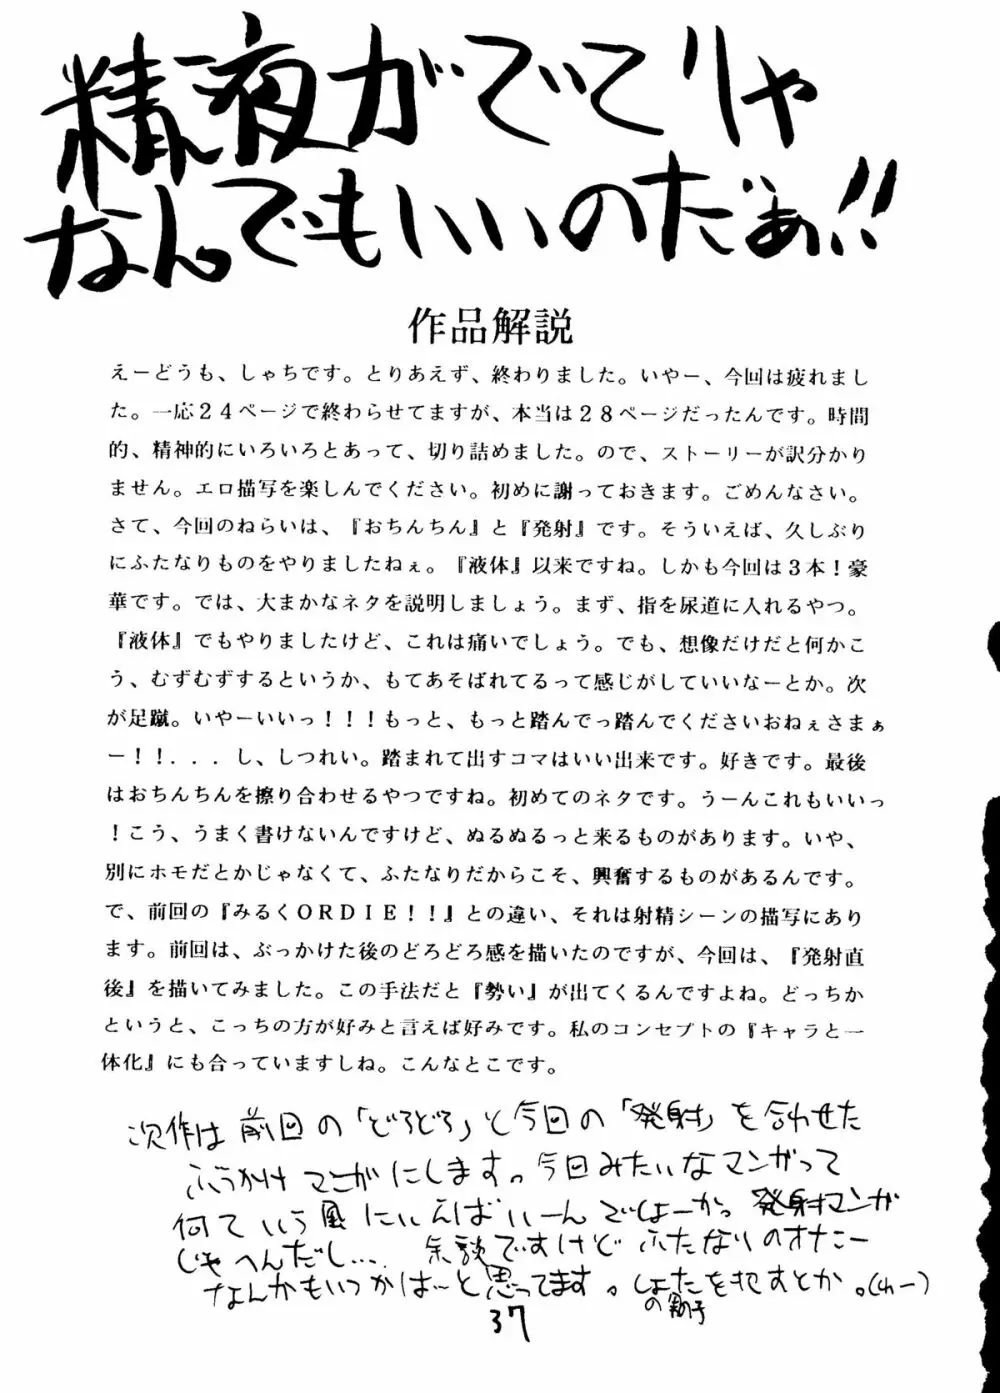 精液がでてりゃ
なんでもいいのだぁ!!
作品解説
えーどうも、しゃちです。とりあえず、終わりました。いやー、今回は疲れまし
た。一応２４ページで終わらせてますが、本当は２８ページだったんです。時間
的、精神的にいろいろとあって、切り詰めました。ので、ストーリーが訳分かり
ません。エロ描写を楽しんでください。初めに謝っておきます。ごめんなさい。
さて、今回のねらいは、『おちんちん』と『発射』です。そういえば、久しぶり
にふたなりものをやりましたねぇ。『液体』以来ですね。しかも今回は３本！豪
華です。では、大まかなネタを説明しましょう。まず、指を尿道に入れるやつ。
『液体』でもやりましたけど、これは痛いでしょう。でも、想像だけだと何かこ
う、むずむずするというか、もてあそばれてるって感じがしていいなーとか。次
が足蹴。いやーいいっ！！！もっと、もっと踏んでっ踏んでくださいおねぇさまぁ
ー！！．．．し、しつれい。踏まれて出すコマはいい出来です。好きです。最後
はおちんちんを擦り合わせるやつですね。初めてのネタです。うーんこれもいいっ
！こう、うまく書けないんですけど、ぬるぬるっと来るものがあります。いや、
別にホモだとかじゃなくて、ふたなりだからこそ、興奮するものがあるんです。
で、前回の『みるくＯＲＤＩＥ！！』との違い、それは射精シーンの描写にあり
ます。前回は、ぶっかけた後のどろどろ感を描いたのですが、今回は、『発射直
後』を描いてみました。この手法だと『勢い』が出てくるんですよね。どっちか
というと、こっちの方が好みと言えば好みです。私のコンセプトの『キャラと一
体化』にも合っていますしね。こんなとこです。
次作は前回の「どろどろ」と今回の「発射」を合わせた
ぶっかけマンガにします。今回みたいなマンガって
何ていう風にいえばいーんでしょーかっ 発射マンガ
じゃへんだし… 余談ですけど
37